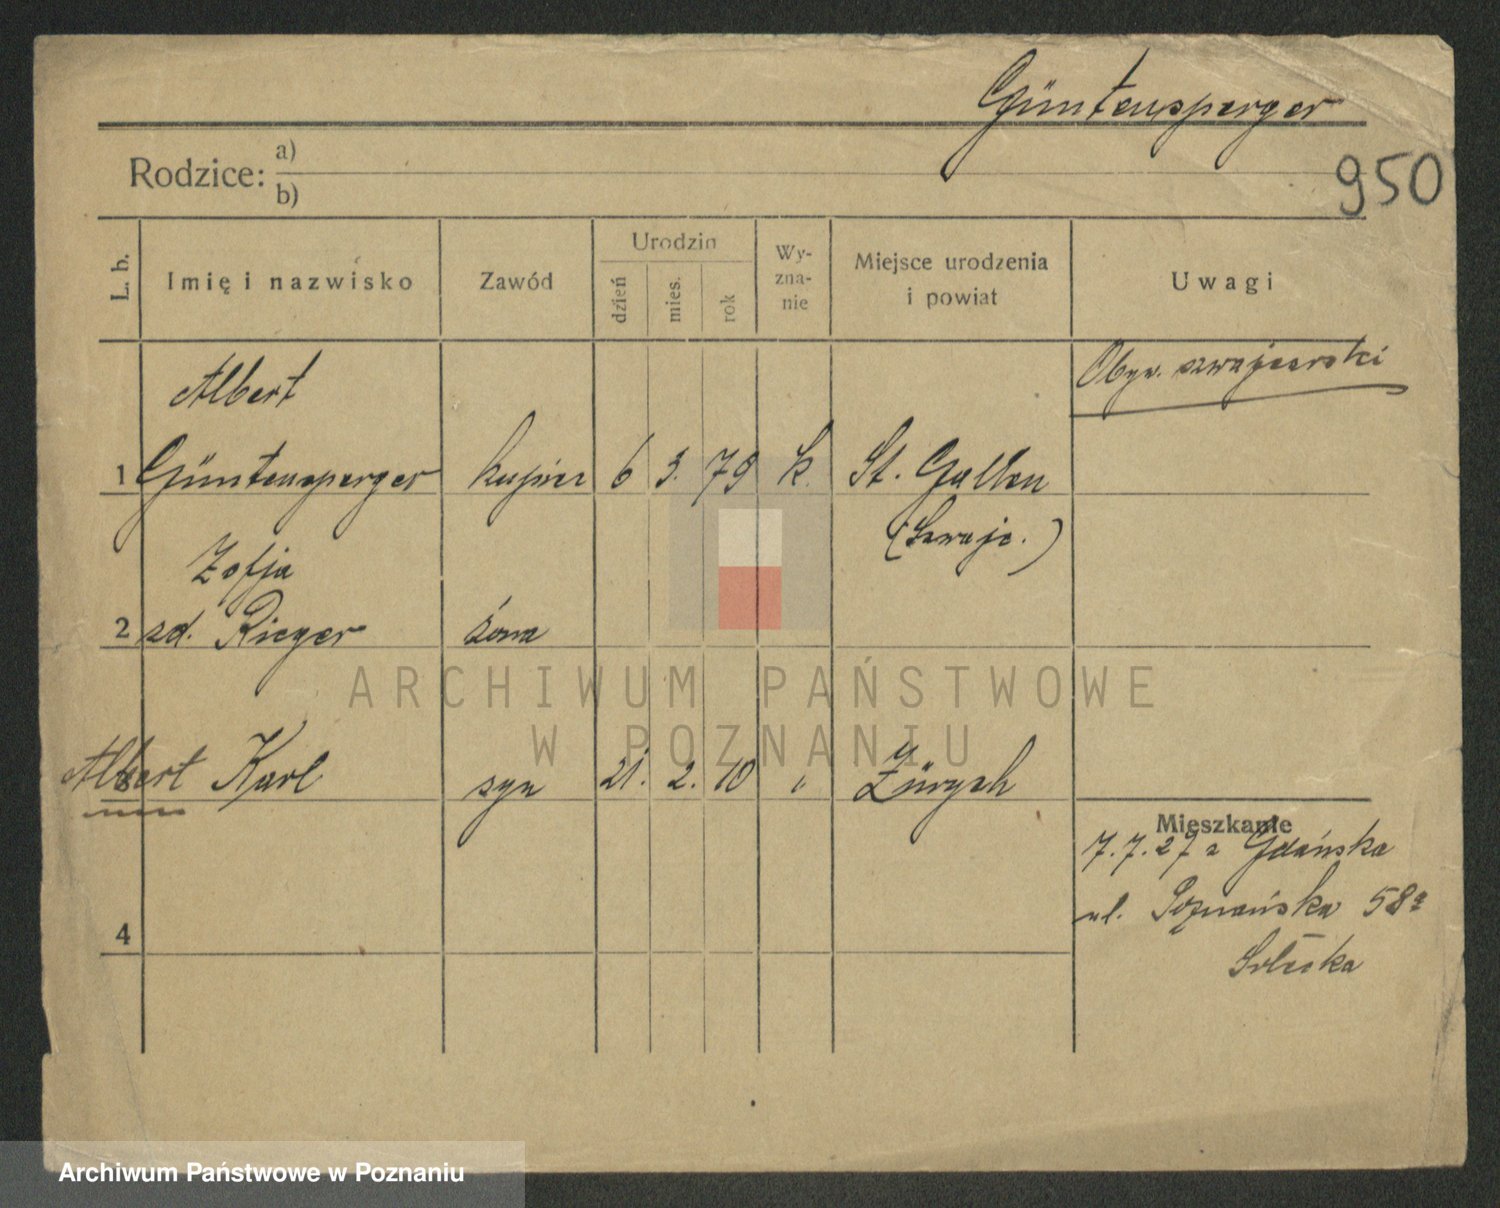 Güntensperger
950
Rodzice: a)
b)
L. b.
Imię i nazwisko
Zawód
Urodzin
dzień
mies.
rok
Wy-
zna-
nie
Miejsce urodzenia
i powiat
Uwagi
Obyw. szwajcarski
Albert
1 Güntensperger kupiec 6 3. 79 k. St. Gallen
(Szwajc.)
Zofja
2 zd. Rieger żona
Albert Karl syn 21. 2. 10 " Zürych
Mieszkanie
7.7.27 z Gdańska
ul. Poznańska 58a
4
ARCHIWUM PAŃSTWOWE
W POZNANIU
Archiwum Państwowe w Poznaniu